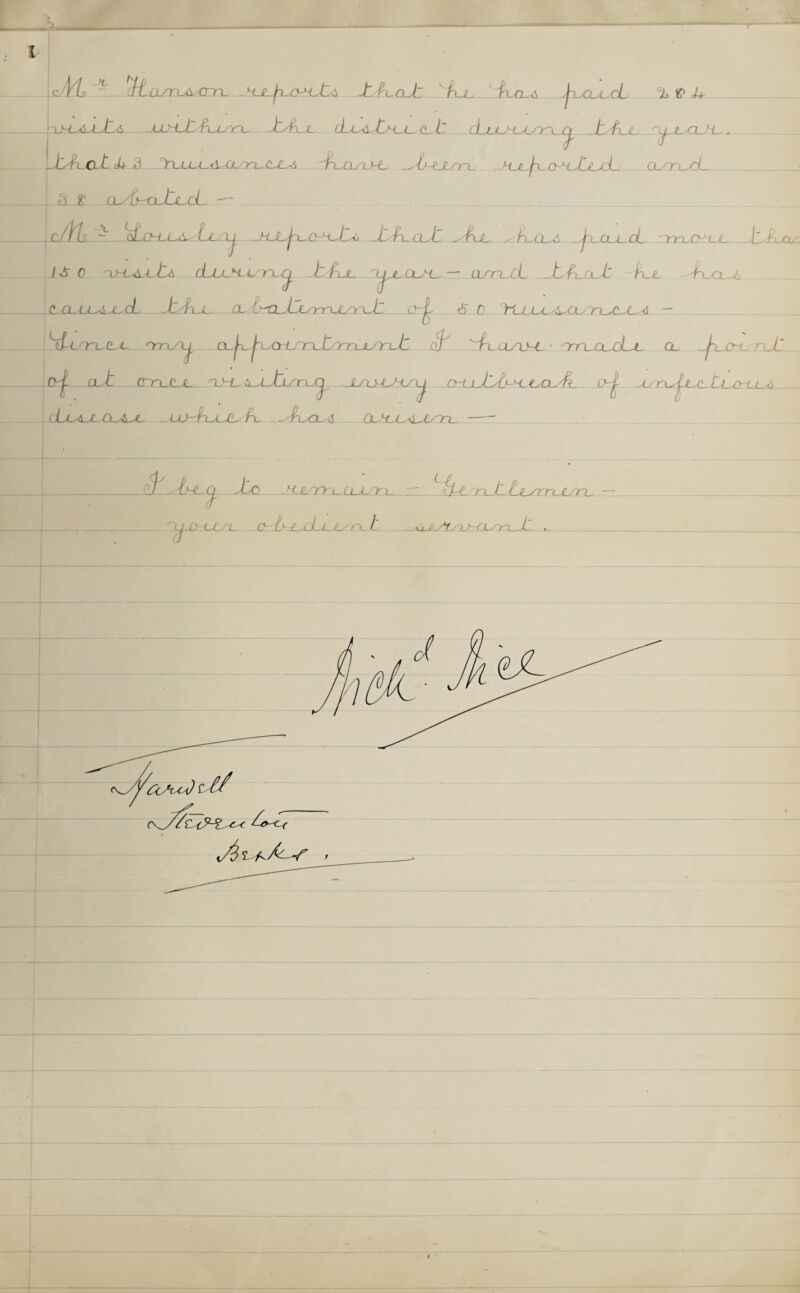 Mr Hanson reports that he has paid 284
visits within the district during the year.
that 43 Nuisances have been reported and
38 abated —
Mr Lousley reports that he has paid more than
150 visits during the year — and that he has
caused the abatement of 50 Nuisances —
Since my appointment I have made a point
of at once visiting every outbreak of infectious
disease which has arisen —
I beg to remain — Gentlemen —
your obedient servant.
Richd Rice